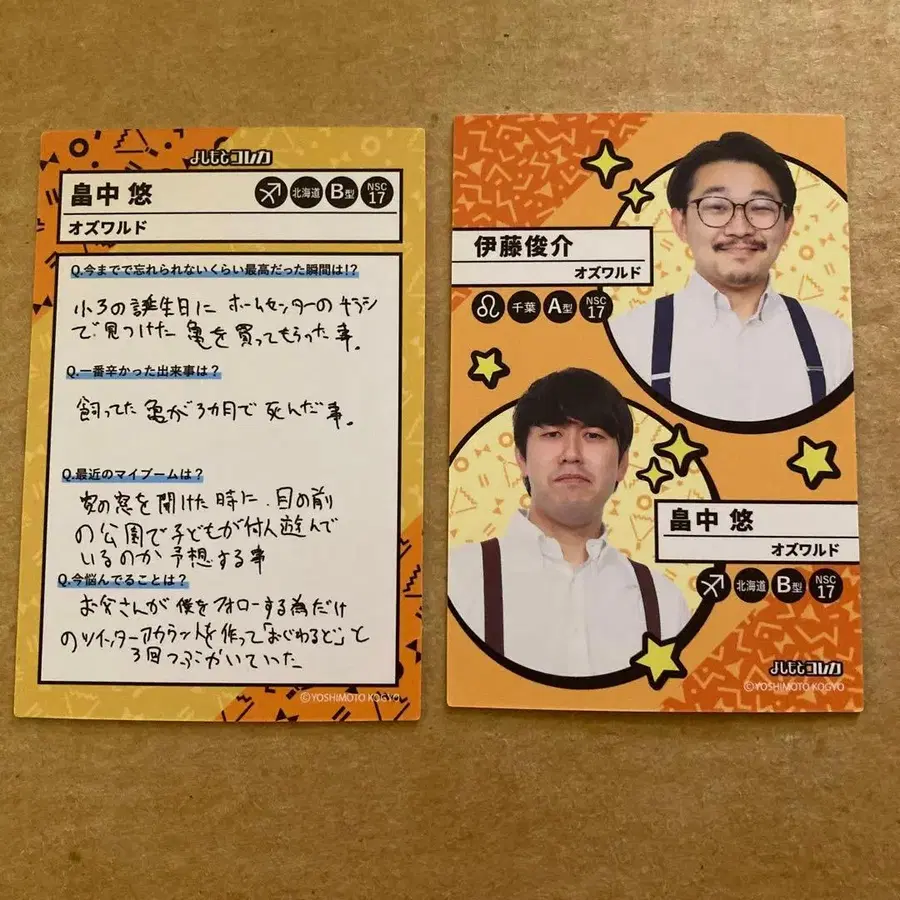 よしもとコレカ
畠中 悠
北海道
B型
NSC 17
オズワルド
Q.今までで忘れられないくらい最高だった瞬間は!?
小3の誕生日に ホームセンターのチラシ
で見つけた 亀を買ってもらった事。
Q.一番辛かった出来事は？
飼ってた亀が3カ月で死んだ事。
Q.最近のマイブームは？
家の窓を開けた時に、目の前
の公園で子どもが何人遊んで
いるのか 予想する事
Q.今悩んでることは？
お父さんが僕をフォローする為だけ
のツイッターアカウントを作って「おじわるど」と
3回つぶやいていた
©YOSHIMOTO KOGYO
伊藤俊介
オズワルド
千葉
A型
NSC 17
畠中 悠
オズワルド
北海道
B型
NSC 17
よしもとコレカ
©YOSHIMOTO KOGYO